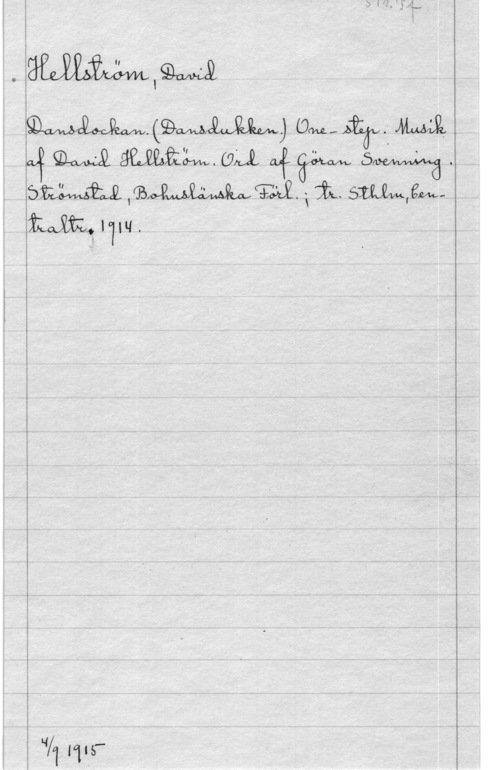 Hellström, David
Dansdockan. (Dansdukken.) One-step. Musik
af David Hellström. Ord af Göran Svenning.
Strömstad, Bohuslänska Förl.; tr. Sthlm, Cen-
traltr., 1914.
4/9 1915